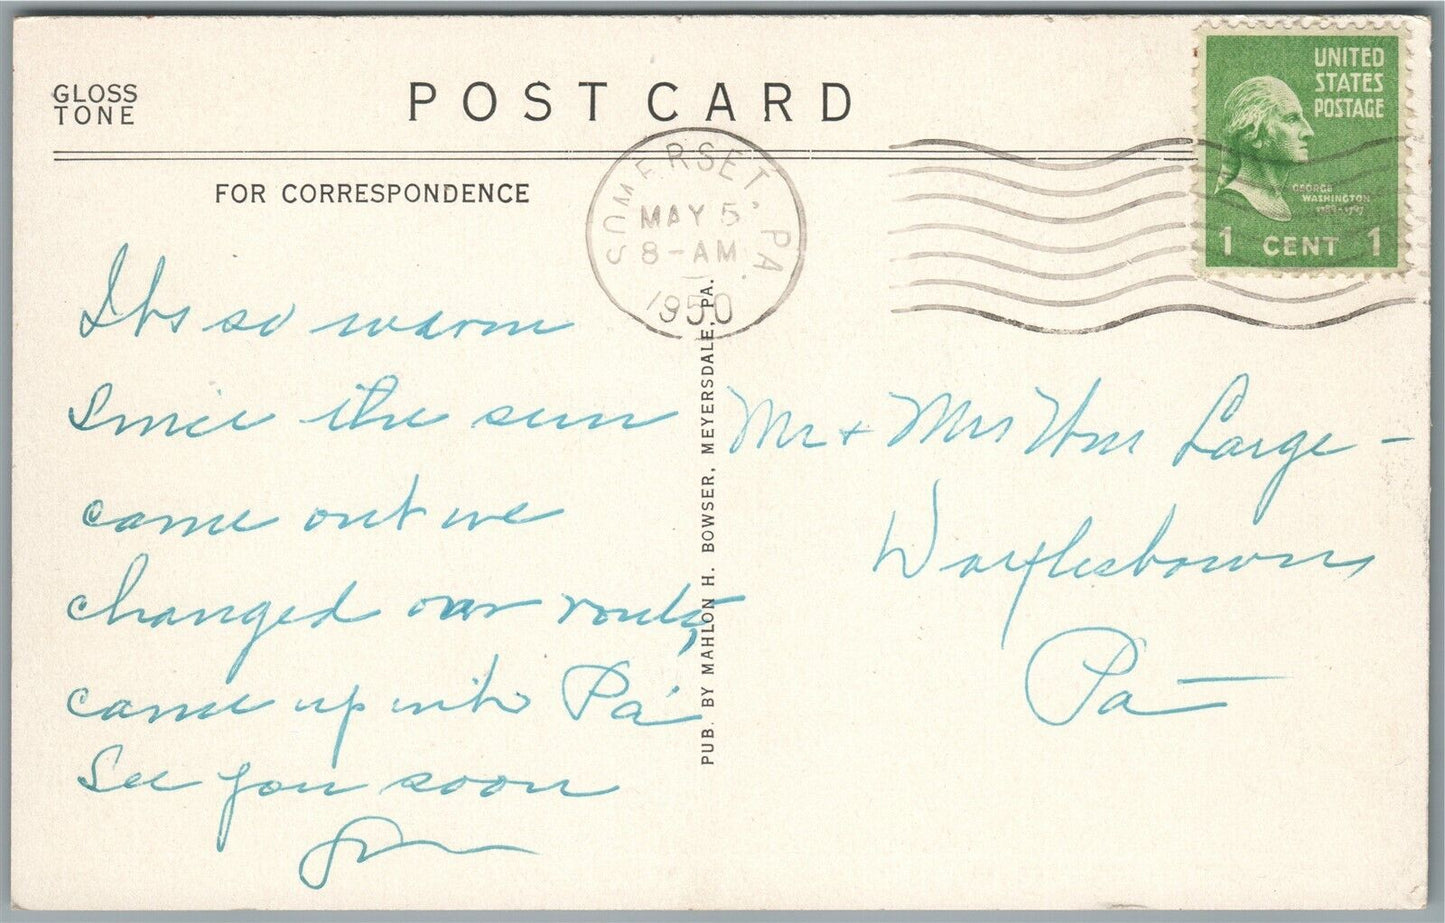 GLOSS
TONE
POST CARD
FOR CORRESPONDENCE
SOMERSET, PA.
MAY 5
8-AM
1950
UNITED
STATES
POSTAGE
GEORGE
WASHINGTON
1789-1797
1 CENT 1
Its so warm
since the sun
came out we
changed our route,
came up into Pa
See you soon
PUB. BY MAHLON H. BOWSER, MEYERSDALE, PA.
Mr + Mrs Wm Large -
Pa